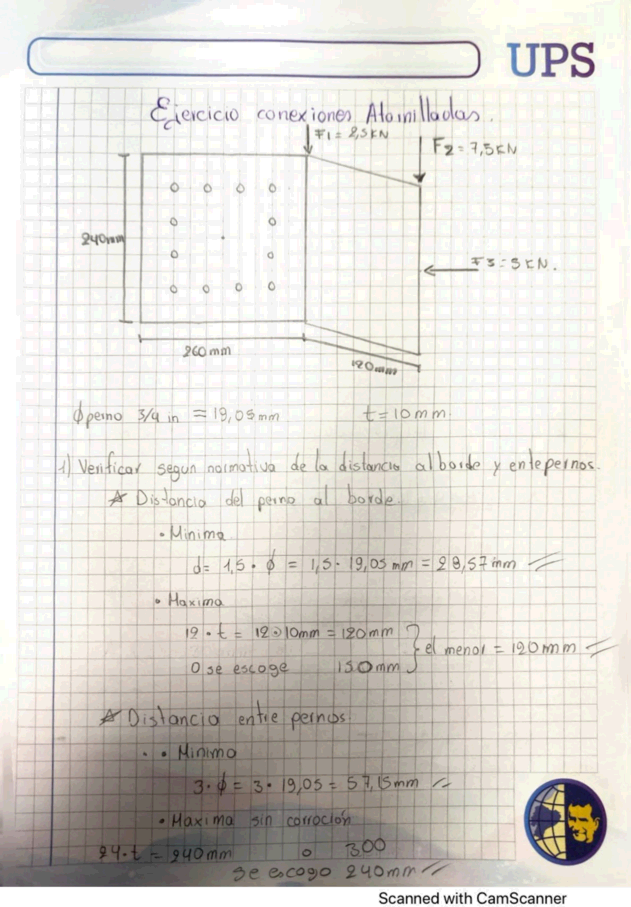 UPS
Ejercicio conexiones Atornilladas.
F1 = 2,5KN
F2 = 7,5KN
240mm
F3 = 5 KN.
260 mm
120mm
ϕ perno 3/4 in = 19,05 mm
t = 10 mm.
1) Verificar segun normativa de la distancia al borde y entepernos.
☆ Distancia del perno al borde.
• Minima
d = 1,5 · ϕ = 1,5 · 19,05 mm = 28,57 mm
• Maxima
12 · t = 12 · 10mm = 120mm
O se escoge 150mm } el menor = 120 mm
☆ Distancia entre pernos.
• • Minimo
3 · ϕ = 3 · 19,05 = 57,15mm
• Maxima sin corroción
24 · t = 240mm o 300
se escogo 240mm
Scanned with CamScanner